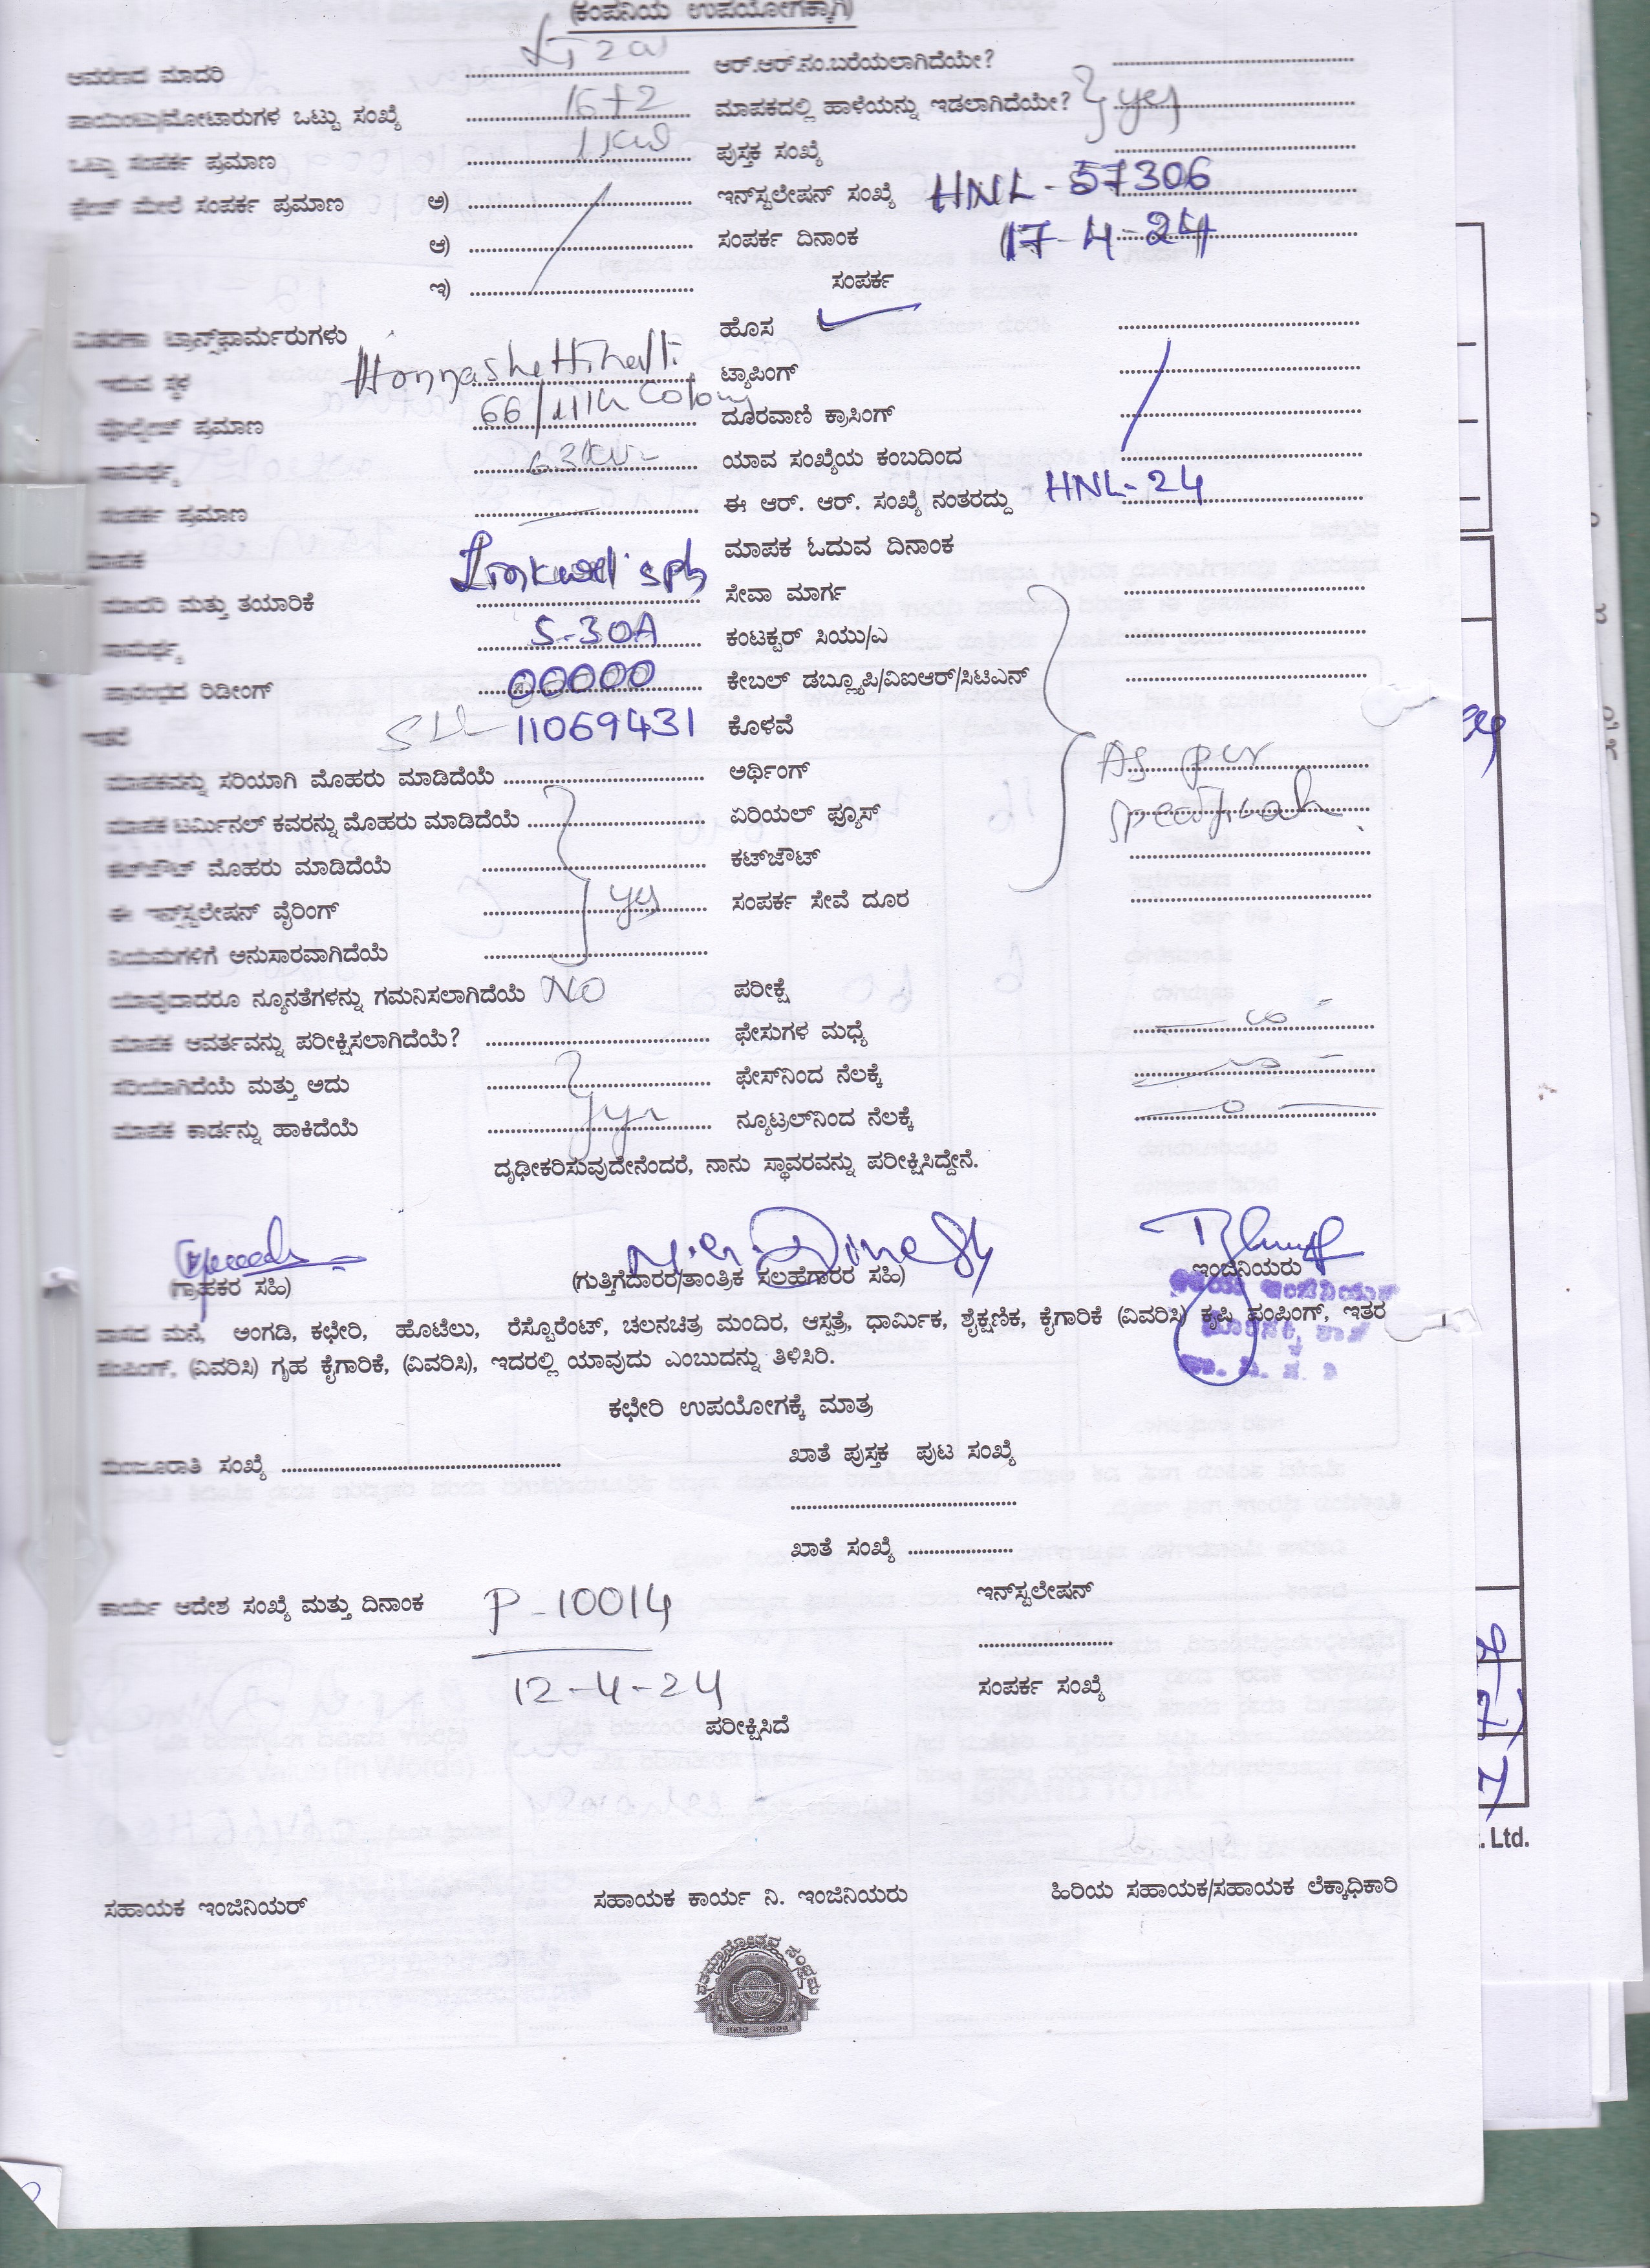 (ಕಂಪನಿಯ ಉಪಯೋಗಕ್ಕಾಗಿ)
ಆವರಣದ ಮಾದರಿ LT 2a ಆರ್.ಆರ್.ನಂ.ಬರೆಯಲಾಗಿದೆಯೇ?
ಪಾಯಿಂಟು/ಮೋಟಾರುಗಳ ಒಟ್ಟು ಸಂಖ್ಯೆ 16+2 ಮಾಪಕದಲ್ಲಿ ಹಾಳೆಯನ್ನು ಇಡಲಾಗಿದೆಯೇ? yes
ಒಟ್ಟು ಸಂಪರ್ಕ ಪ್ರಮಾಣ 1KW ಪುಸ್ತಕ ಸಂಖ್ಯೆ
ಫೇಜ್ ಮೇಲೆ ಸಂಪರ್ಕ ಪ್ರಮಾಣ ಅ) ಇನ್‌ಸ್ಟಲೇಷನ್ ಸಂಖ್ಯೆ HNL-57306
ಆ) ಸಂಪರ್ಕ ದಿನಾಂಕ 17-4-24
ಇ) ಸಂಪರ್ಕ
ವಿತರಣಾ ಟ್ರಾನ್ಸ್‌ಫಾರ್ಮರುಗಳು ಹೊಸ
ಇರುವ ಸ್ಥಳ Honnashettihalli ಟ್ಯಾಪಿಂಗ್
ವೋಲ್ಟೇಜ್ ಪ್ರಮಾಣ 66/11k Colony ದೂರವಾಣಿ ಕ್ರಾಸಿಂಗ್
ಸಾಮರ್ಥ್ಯ ಯಾವ ಸಂಖ್ಯೆಯ ಕಂಬದಿಂದ
ಸಂಪರ್ಕ ಪ್ರಮಾಣ ಈ ಆರ್. ಆರ್. ಸಂಖ್ಯೆ ನಂತರದ್ದು HNL-24
ಮಾಪಕ ಮಾಪಕ ಓದುವ ದಿನಾಂಕ
ಮಾದರಿ ಮತ್ತು ತಯಾರಿಕೆ Linkwell sph ಸೇವಾ ಮಾರ್ಗ
ಸಾಮರ್ಥ್ಯ 5-30A ಕಂಟಕ್ಟರ್ ಸಿಯು/ಎ
ಪ್ರಾರಂಭದ ರಿಡೀಂಗ್ 00000 ಕೇಬಲ್ ಡಬ್ಲ್ಯೂಪಿ/ವಿಐಆರ್/ಸಿಟಿಎನ್
ಇತರೆ 11069431 ಕೊಳವೆ
ಮಾಪಕವನ್ನು ಸರಿಯಾಗಿ ಮೊಹರು ಮಾಡಿದೆಯೆ ಅರ್ಥಿಂಗ್ As per
ಮಾಪಕ ಟರ್ಮಿನಲ್ ಕವರನ್ನು ಮೊಹರು ಮಾಡಿದೆಯೆ ಏರಿಯಲ್ ಫ್ಯೂಸ್
ಕಟ್‌ಔಟ್ ಮೊಹರು ಮಾಡಿದೆಯೆ ಕಟ್‌ಔಟ್
ಈ ಇನ್‌ಸ್ಟಲೇಷನ್ ವೈರಿಂಗ್ yes ಸಂಪರ್ಕ ಸೇವೆ ದೂರ
ನಿಯಮಗಳಿಗೆ ಅನುಸಾರವಾಗಿದೆಯೆ
ಯಾವುದಾದರೂ ನ್ಯೂನತೆಗಳನ್ನು ಗಮನಿಸಲಾಗಿದೆಯೆ NO ಪರೀಕ್ಷೆ
ಮಾಪಕ ಆವರ್ತವನ್ನು ಪರೀಕ್ಷಿಸಲಾಗಿದೆಯೆ? ಫೇಸುಗಳ ಮಧ್ಯೆ
ಸರಿಯಾಗಿದೆಯೆ ಮತ್ತು ಅದು ಫೇಸ್‌ನಿಂದ ನೆಲಕ್ಕೆ
ಮಾಪಕ ಕಾರ್ಡನ್ನು ಹಾಕಿದೆಯೆ ನ್ಯೂಟ್ರಲ್‌ನಿಂದ ನೆಲಕ್ಕೆ
ದೃಢೀಕರಿಸುವುದೇನೆಂದರೆ, ನಾನು ಸ್ಥಾವರವನ್ನು ಪರೀಕ್ಷಿಸಿದ್ದೇನೆ.
(ಗ್ರಾಹಕರ ಸಹಿ) (ಗುತ್ತಿಗೆದಾರರ/ತಾಂತ್ರಿಕ ಸಲಹೆಗಾರರ ಸಹಿ) ಇಂಜಿನಿಯರು
ವಾಸದ ಮನೆ, ಅಂಗಡಿ, ಕಛೇರಿ, ಹೊಟೆಲು, ರೆಸ್ಟೋರೆಂಟ್, ಚಲನಚಿತ್ರ ಮಂದಿರ, ಆಸ್ಪತ್ರೆ, ಧಾರ್ಮಿಕ, ಶೈಕ್ಷಣಿಕ, ಕೈಗಾರಿಕೆ (ವಿವರಿಸಿ) ಕೃಷಿ ಪಂಪಿಂಗ್, ಇತರ
ಪಂಪಿಂಗ್, (ವಿವರಿಸಿ) ಗೃಹ ಕೈಗಾರಿಕೆ, (ವಿವರಿಸಿ), ಇದರಲ್ಲಿ ಯಾವುದು ಎಂಬುದನ್ನು ತಿಳಿಸಿರಿ.
ಕಛೇರಿ ಉಪಯೋಗಕ್ಕೆ ಮಾತ್ರ
ಮಂಜೂರಾತಿ ಸಂಖ್ಯೆ ಖಾತೆ ಪುಸ್ತಕ ಪುಟ ಸಂಖ್ಯೆ
ಖಾತೆ ಸಂಖ್ಯೆ
ಕಾರ್ಯ ಆದೇಶ ಸಂಖ್ಯೆ ಮತ್ತು ದಿನಾಂಕ P-10014 ಇನ್‌ಸ್ಟಲೇಷನ್
12-4-24 ಸಂಪರ್ಕ ಸಂಖ್ಯೆ
ಪರೀಕ್ಷಿಸಿದೆ
. Ltd.
ಸಹಾಯಕ ಇಂಜಿನಿಯರ್ ಸಹಾಯಕ ಕಾರ್ಯ ನಿ. ಇಂಜಿನಿಯರು ಹಿರಿಯ ಸಹಾಯಕ/ಸಹಾಯಕ ಲೆಕ್ಕಾಧಿಕಾರಿ
1922 - 2022